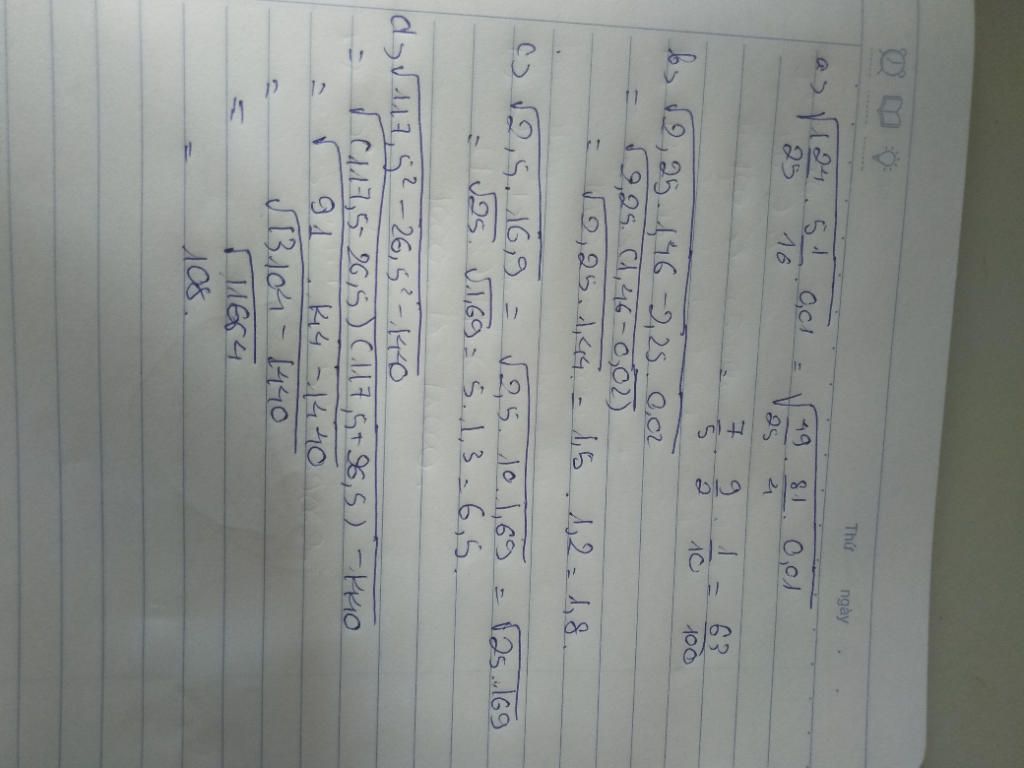 Thứ ngày
a> √(1 24/25 . 5 1/16 . 0,01) = √(49/25 . 81/4 . 0,01)
= 7/5 . 9/2 . 1/10 = 63/100
b> √(2,25 . 1,46 - 2,25 . 0,02)
= √(2,25 . (1,46 - 0,02))
= √(2,25 . 1,44) = 1,5 . 1,2 = 1,8.
c> √(2,5 . 16,9) = √(2,5 . 10 . 1,69) = √(25 . 169)
= √25 . √1,69 = 5 . 1,3 = 6,5.
d> √(117,5² - 26,5² - 1440)
= √((117,5 - 26,5)(117,5 + 26,5) - 1440)
= √(91 . 144 - 1440)
= √(13,104 - 1440)
= √11664
= 108.